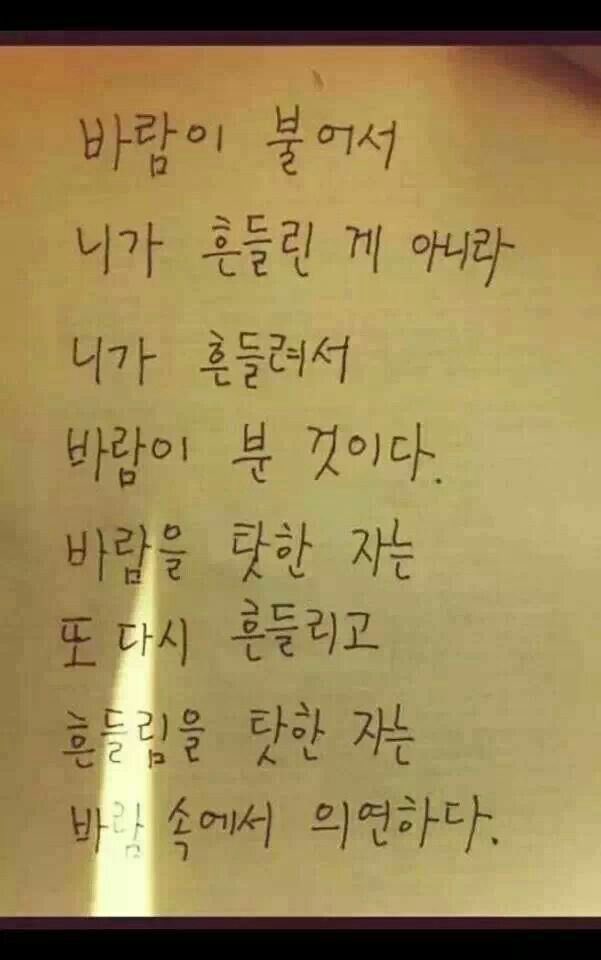 바람이 불어서
니가 흔들린 게 아니라
니가 흔들려서
바람이 분 것이다.
바람을 탓한 자는
또 다시 흔들리고
흔들림을 탓한 자는
바람 속에서 의연하다.